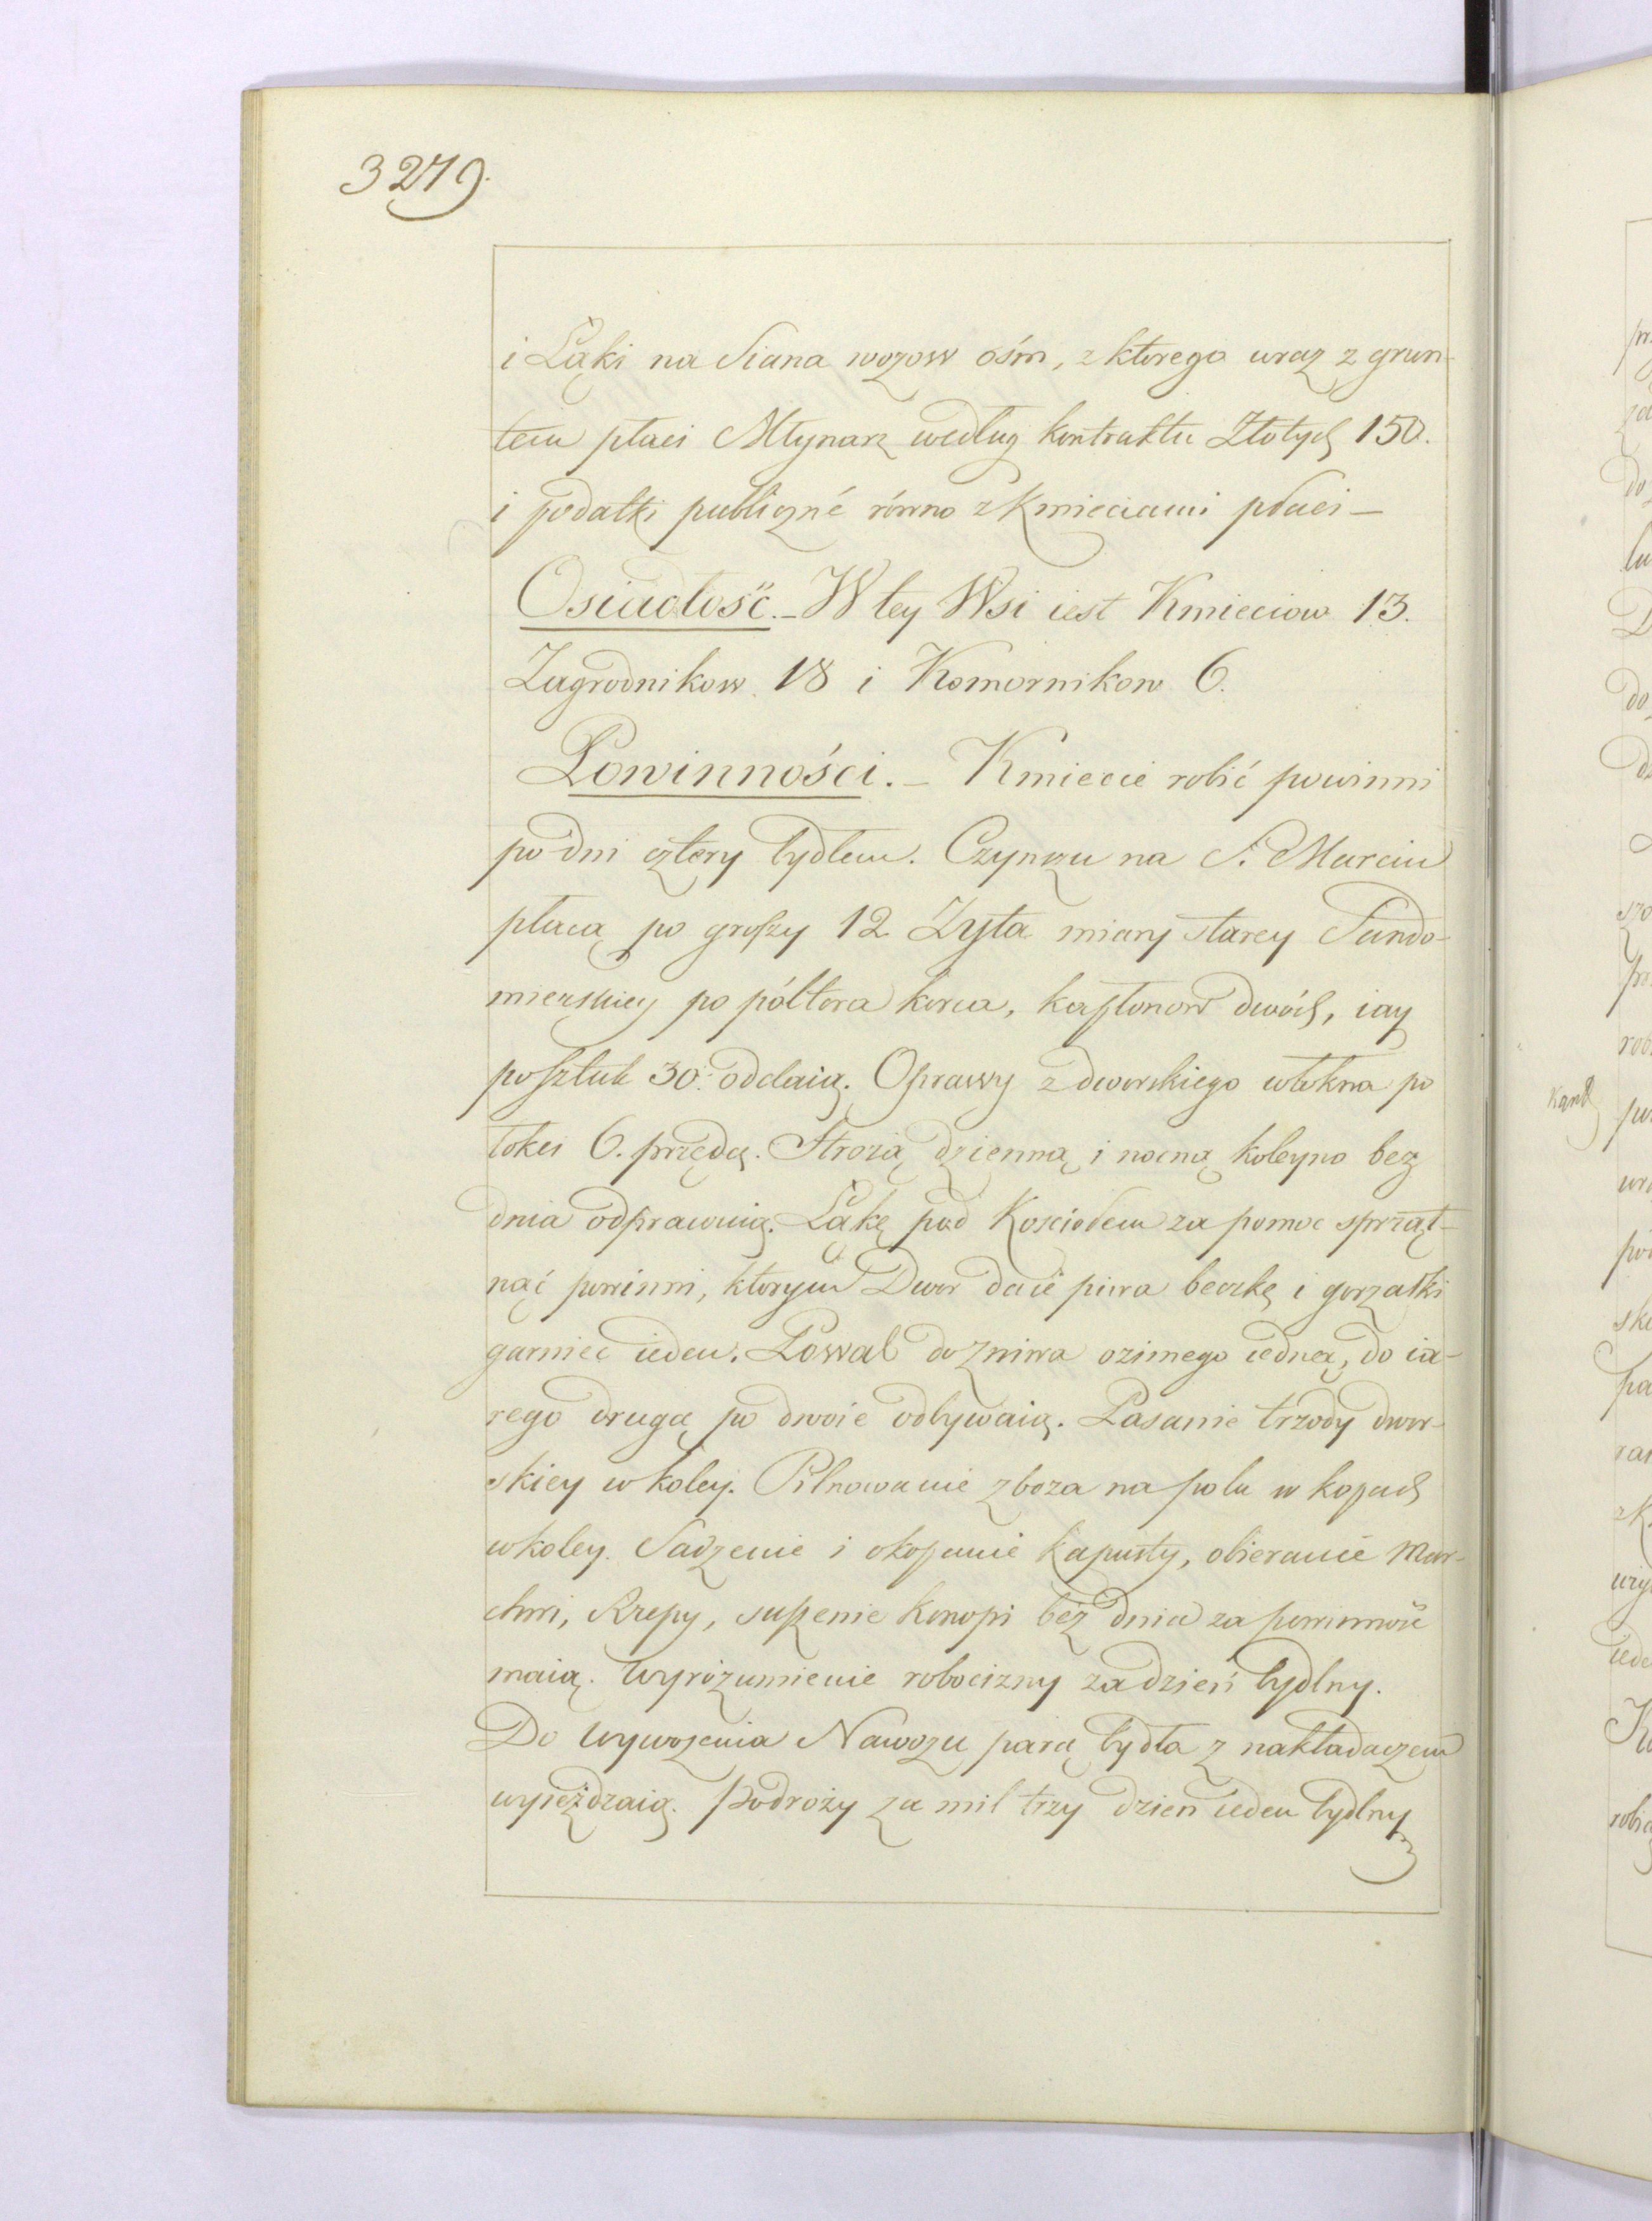 3279.
i Łąki na Siana wozow ośm, z ktorego wraz z grun-
tem płaci Młynarz według kontraktu Złotych 150.
i podatki publiczné równo z Kmieciami płaci —
Osiadłość. – W tey Wsi iest Kmieciow 13.
Zagrodnikow 18 i Komornikow 6.
Powinności. – Kmiecie robić powinni
po dni cztery bydłem. Czynszu na S. Marcin
płacą po groszy 12 Żyta miary starey Sando-
mierskiey po półtora korca, kapłonow dwóch, iay
po sztuk 30. oddaią. Oprawy z dworskiego włókna po
łokci 6. przędą. Strożą dzienną i nocną koleyno bez
dnia odprawuią. Łąkę pod Kosciołem za pomoc sprząt-
nąć powinni, ktorym Dwor daie piwa beczkę i gorzałki
garniec ieden. Powab do żniwa ozimego iedną, do ia-
rego drugą po dwoie odbywaią. Pasanie trzody dwor-
skiey w koley. Pilnowanie zboza na polu w kopach
w koley. Sadzenie i okopanie kapusty, obieranie Mar-
chwi, Rzepy, suszenie konopi bez dnia za powinność
maią. Wyrozumienie robocizny za dzień bydlny.
Do wywozenia Nawozu parą bydła z nakładaczem
wyieżdzaią. Podroży za mil trzy dzien ieden bydlny